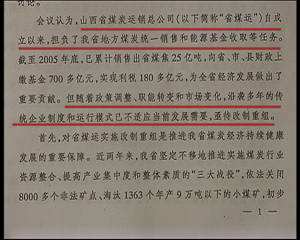 讨论。
会议认为，山西省煤炭运销总公司(以下简称“省煤运”)自成
立以来，担负了我省地方煤炭统一销售和能源基金收取等任务。
截至2005年底，已累计销售出省煤焦25亿吨，向省、市、县财政上
缴基金700多亿元，实现利税180多亿元，为全省经济发展做出了
重要贡献。但随着政策调整、职能转变和市场变化，沿袭多年的传
统企业制度和运行模式已不适应当前发展需要，亟待改制重组。
首先，对省煤运实施改制重组是推进我省煤炭经济持续健康
发展的重要保障。近两年来，我省坚定不移地推进实施煤炭行业
资源整合、提高产业集中度和整体素质的“三大战役”，依法关闭
8000多个非法矿点、淘汰1363个年产9万吨以下的小煤矿，初步
— 1 —